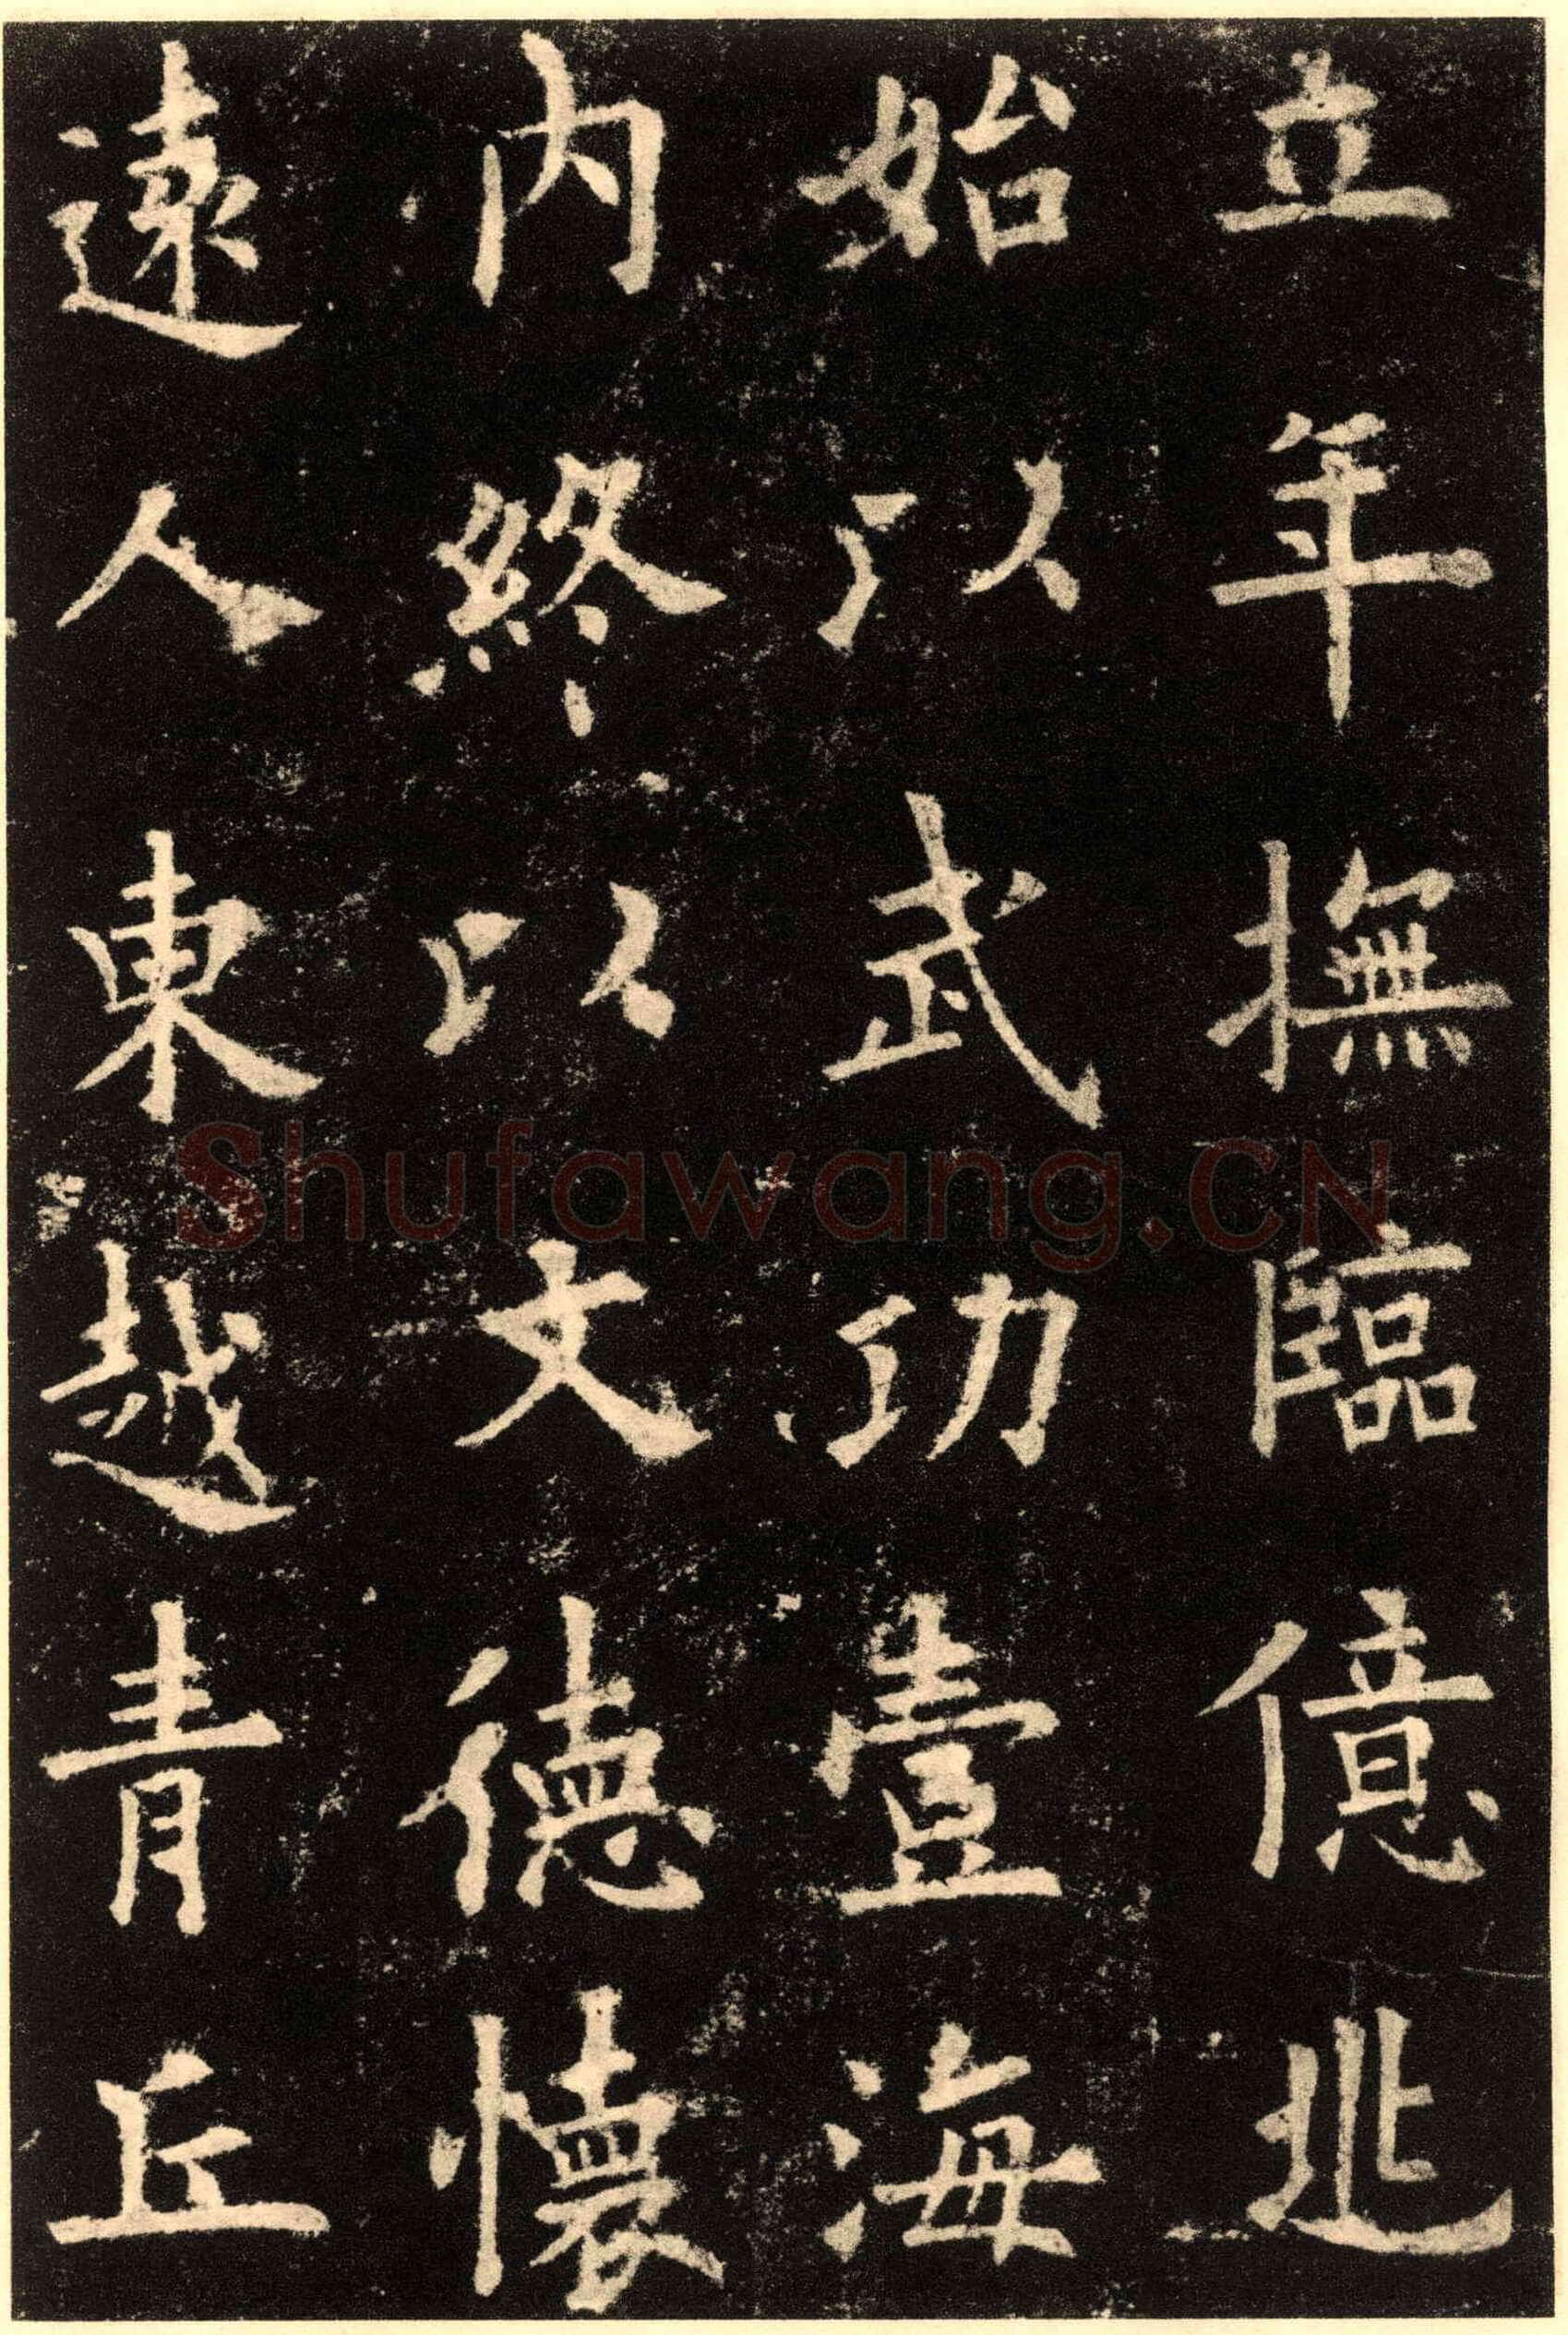 立年撫臨億兆
始以武功壹海
內終以文德懷
遠人東越青丘
Shufawang.CN